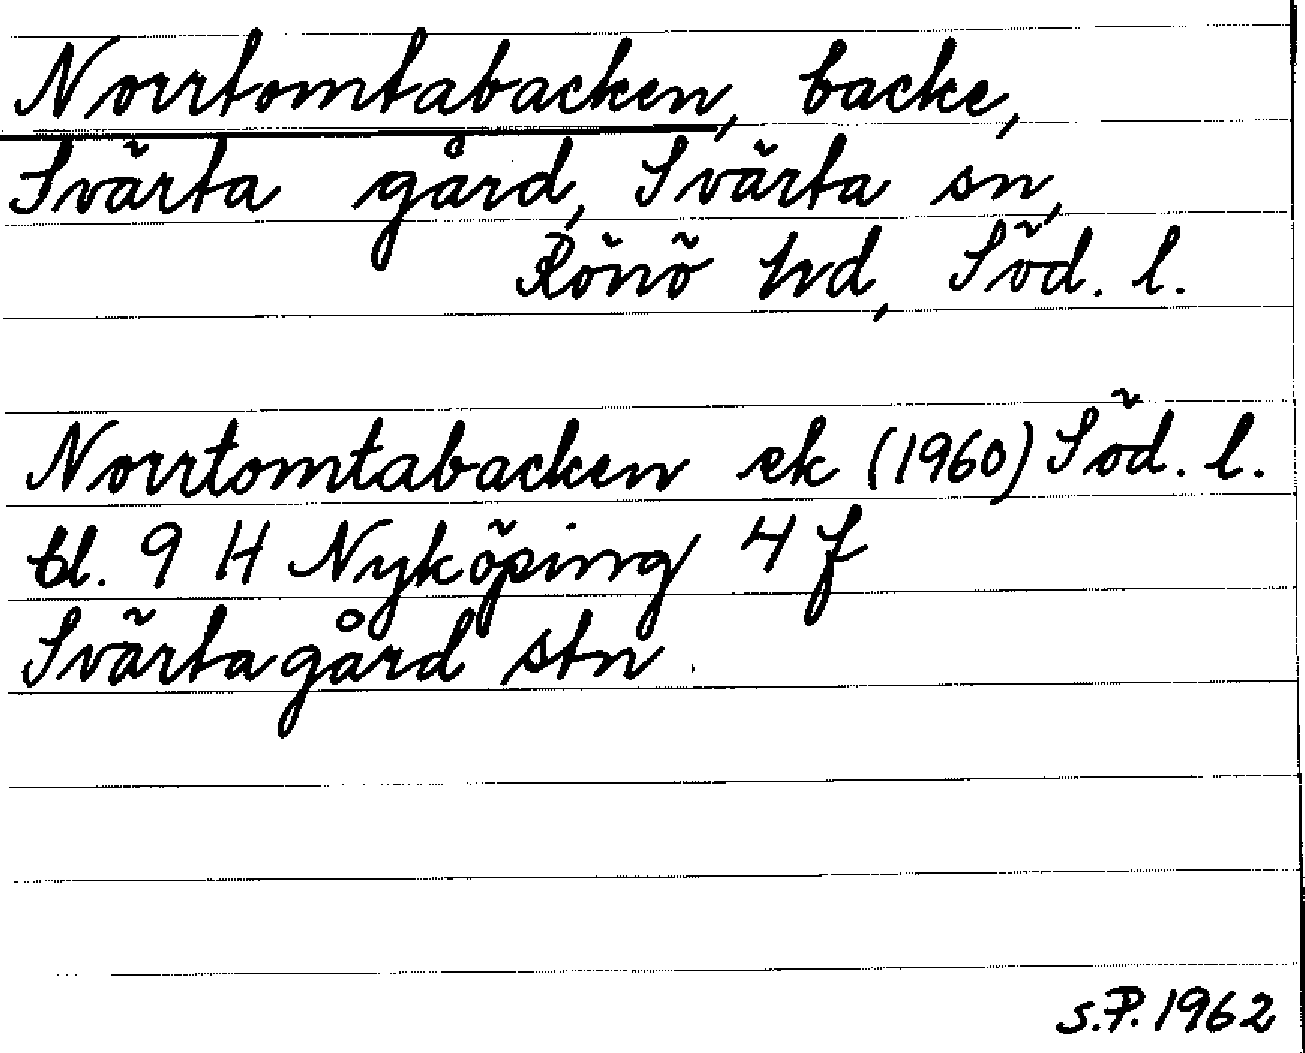 Norrtomtabacken, backe,
Svärta gård, Svärta sn,
Rönö hd, Söd. l.
Norrtomtabacken ek (1960) Söd. l.
bl. 9 H Nyköping 4 f
Svärtagård stn.
S.P. 1962